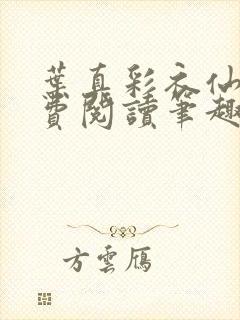 葉真彩衣仙
費閱讀筆趣
方雲鴈